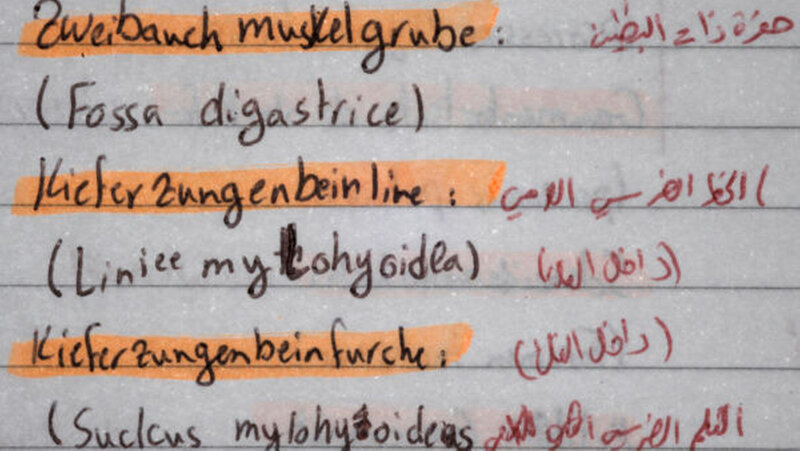 Zweibauch muskelgrube: حفرة ذات البطنين
(Fossa digastrice)
Kieferzungenbeinline: الخط الضرسي اللامي)
(Liniee mylohyoidea) (داخل
Kieferzungenbeinfurche: (داخل
(Suclcus mylohyoideas التلم الضرسي